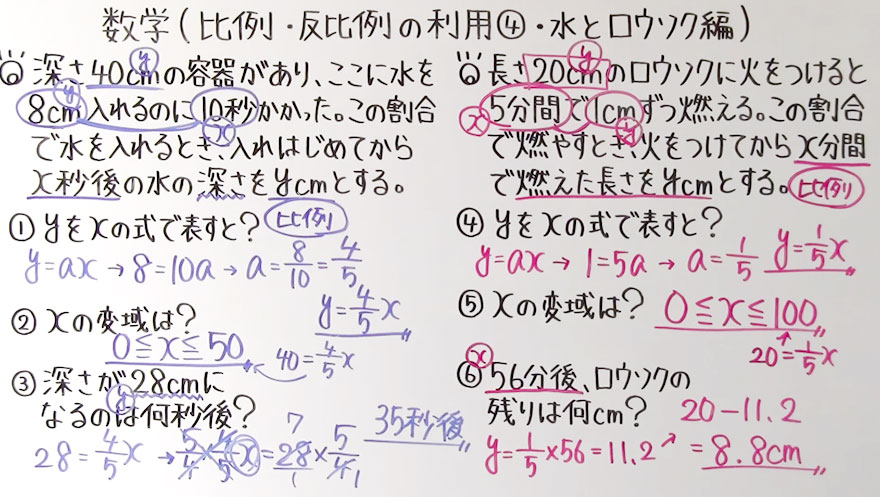 数学(比例・反比例の利用④・水とロウソク編)
深さ40cmの容器があり、ここに水を
y
8cm入れるのに10秒かかった。この割合
y
x
で水を入れるとき、入れはじめてから
x秒後の水の深さをycmとする。
① yをxの式で表すと?
比例
y=ax→8=10a→a=8/10=4/5
y=4/5x
② xの変域は?
0≦x≦50
40=4/5x
③ 深さが28cmに
y
なるのは何秒後?
28=4/5x→5/4×4/5x=28×5/4
7
1
1
35秒後
長さ20cmのロウソクに火をつけると
y
5分間で1cmずつ燃える。この割合
x
y
で燃やすとき、火をつけてからx分間
で燃えた長さをycmとする。
比例
④ yをxの式で表すと?
y=ax→1=5a→a=1/5
y=1/5x
⑤ xの変域は?
0≦x≦100
20=1/5x
x
⑥ 56分後、ロウソクの
残りは何cm?
20-11.2
y=1/5×56=11.2
=8.8cm